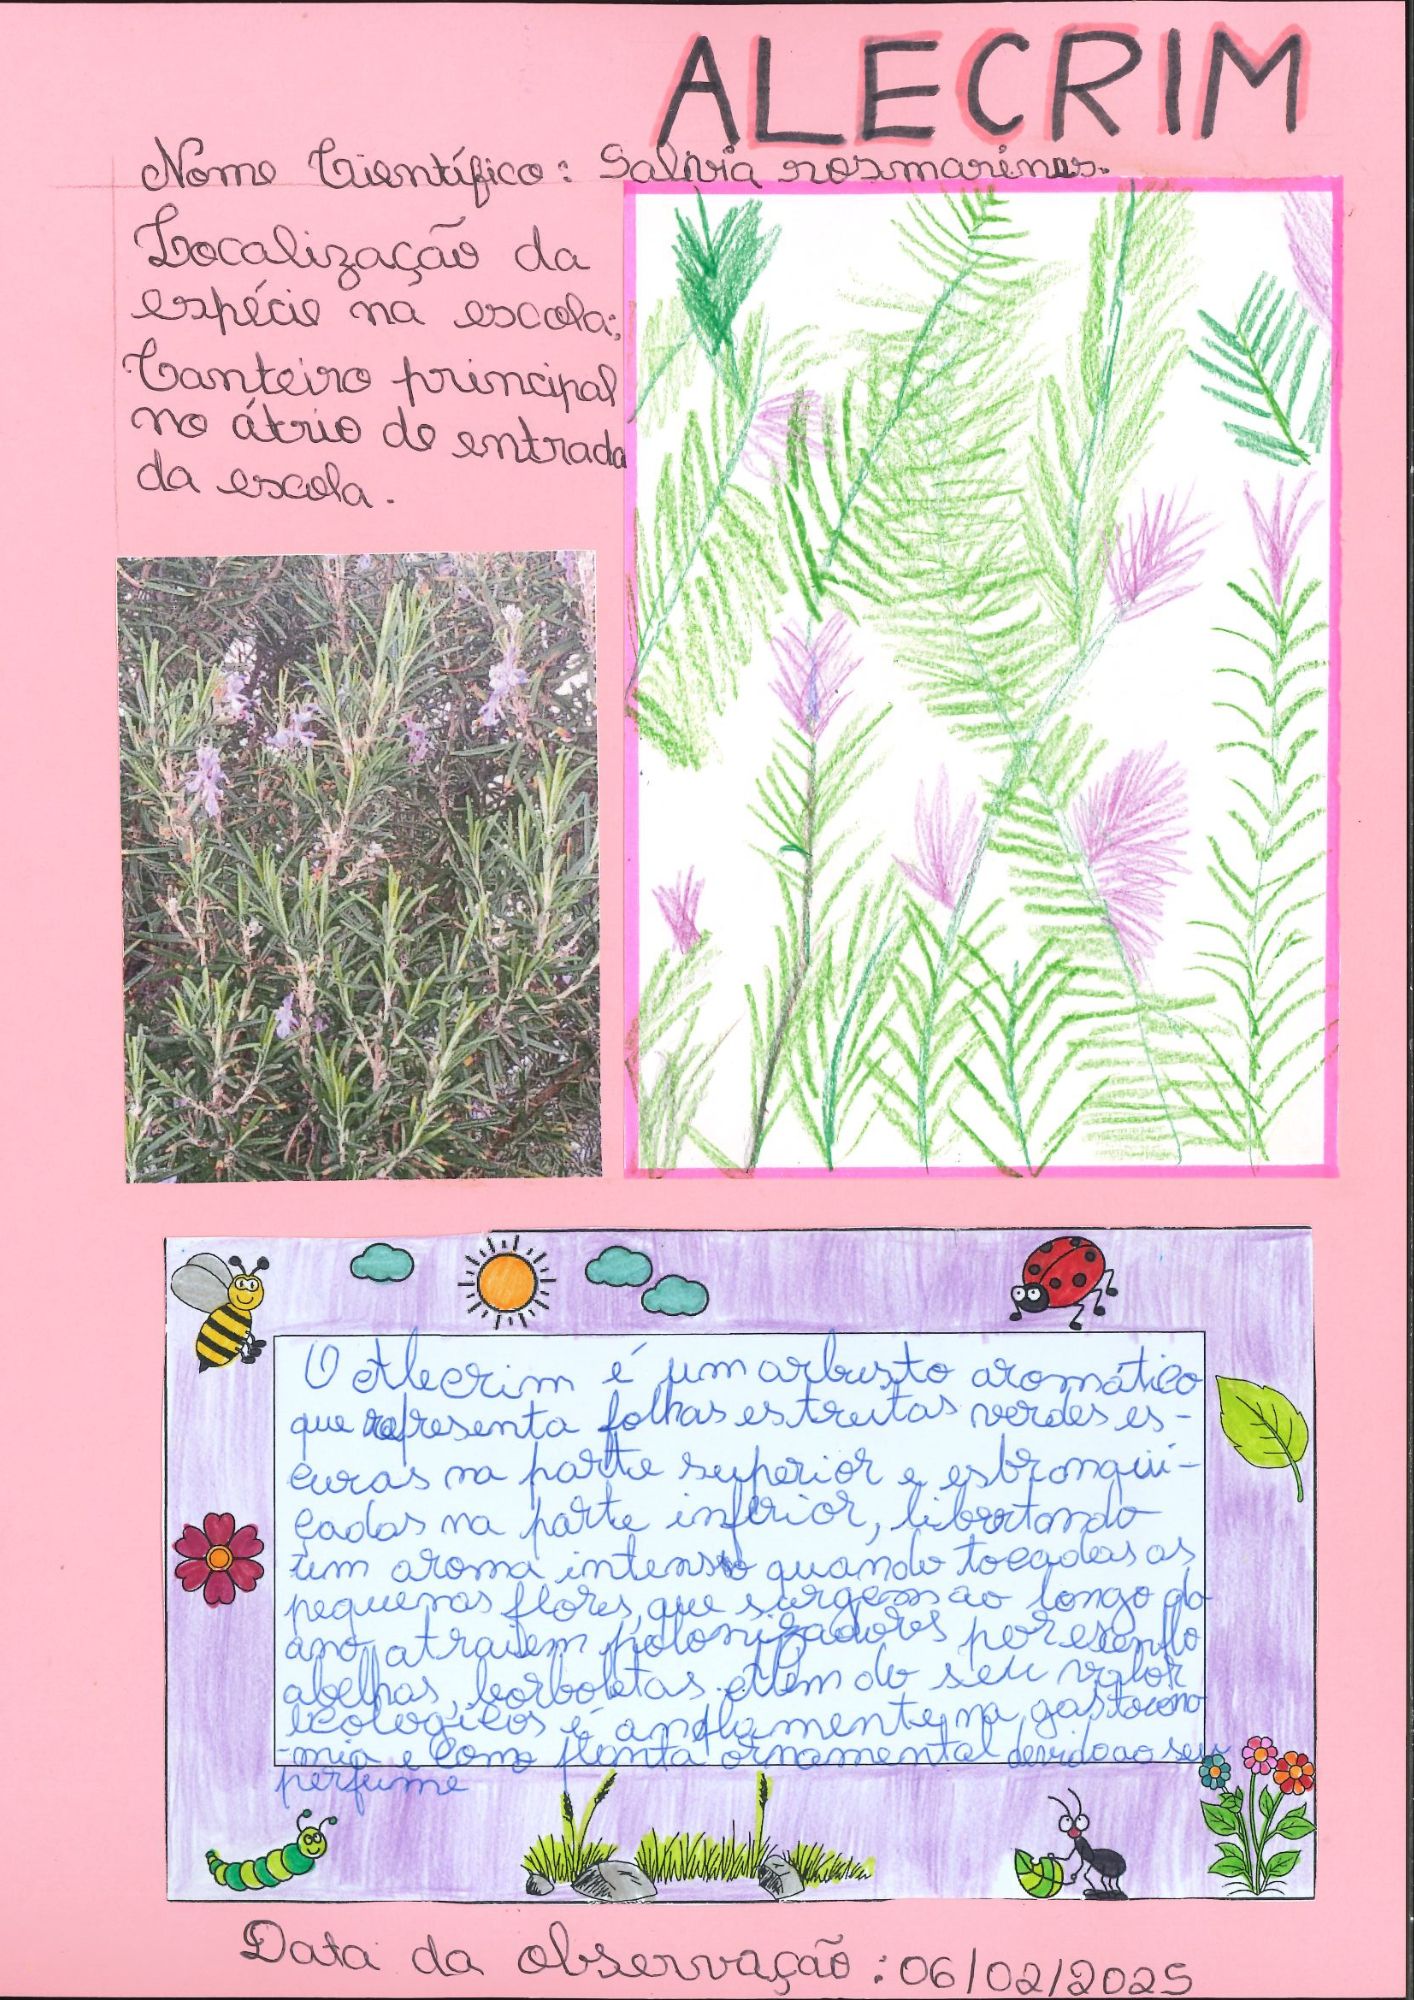 ALECRIM
Nome Científico: Salvia rosmarinus.
Localização da
espécie na escola:
Canteiro principal
no átrio de entrada
da escola.
O Alecrim é um arbusto aromático
que representa folhas estreitas verdes es-
curas na parte superior e esbranqui-
çadas na parte inferior, libertando
um aroma intenso quando tocadas as
pequenas flores, que surgem ao longo do
ano atraiem polonizadores por exenflo
abelhas, borboletas. Além do seu valor
ecologicos é anflamente, na gastrono
-mia e como flenta ornamental devido ao seu
perfume
Data da observação: 06/02/2025